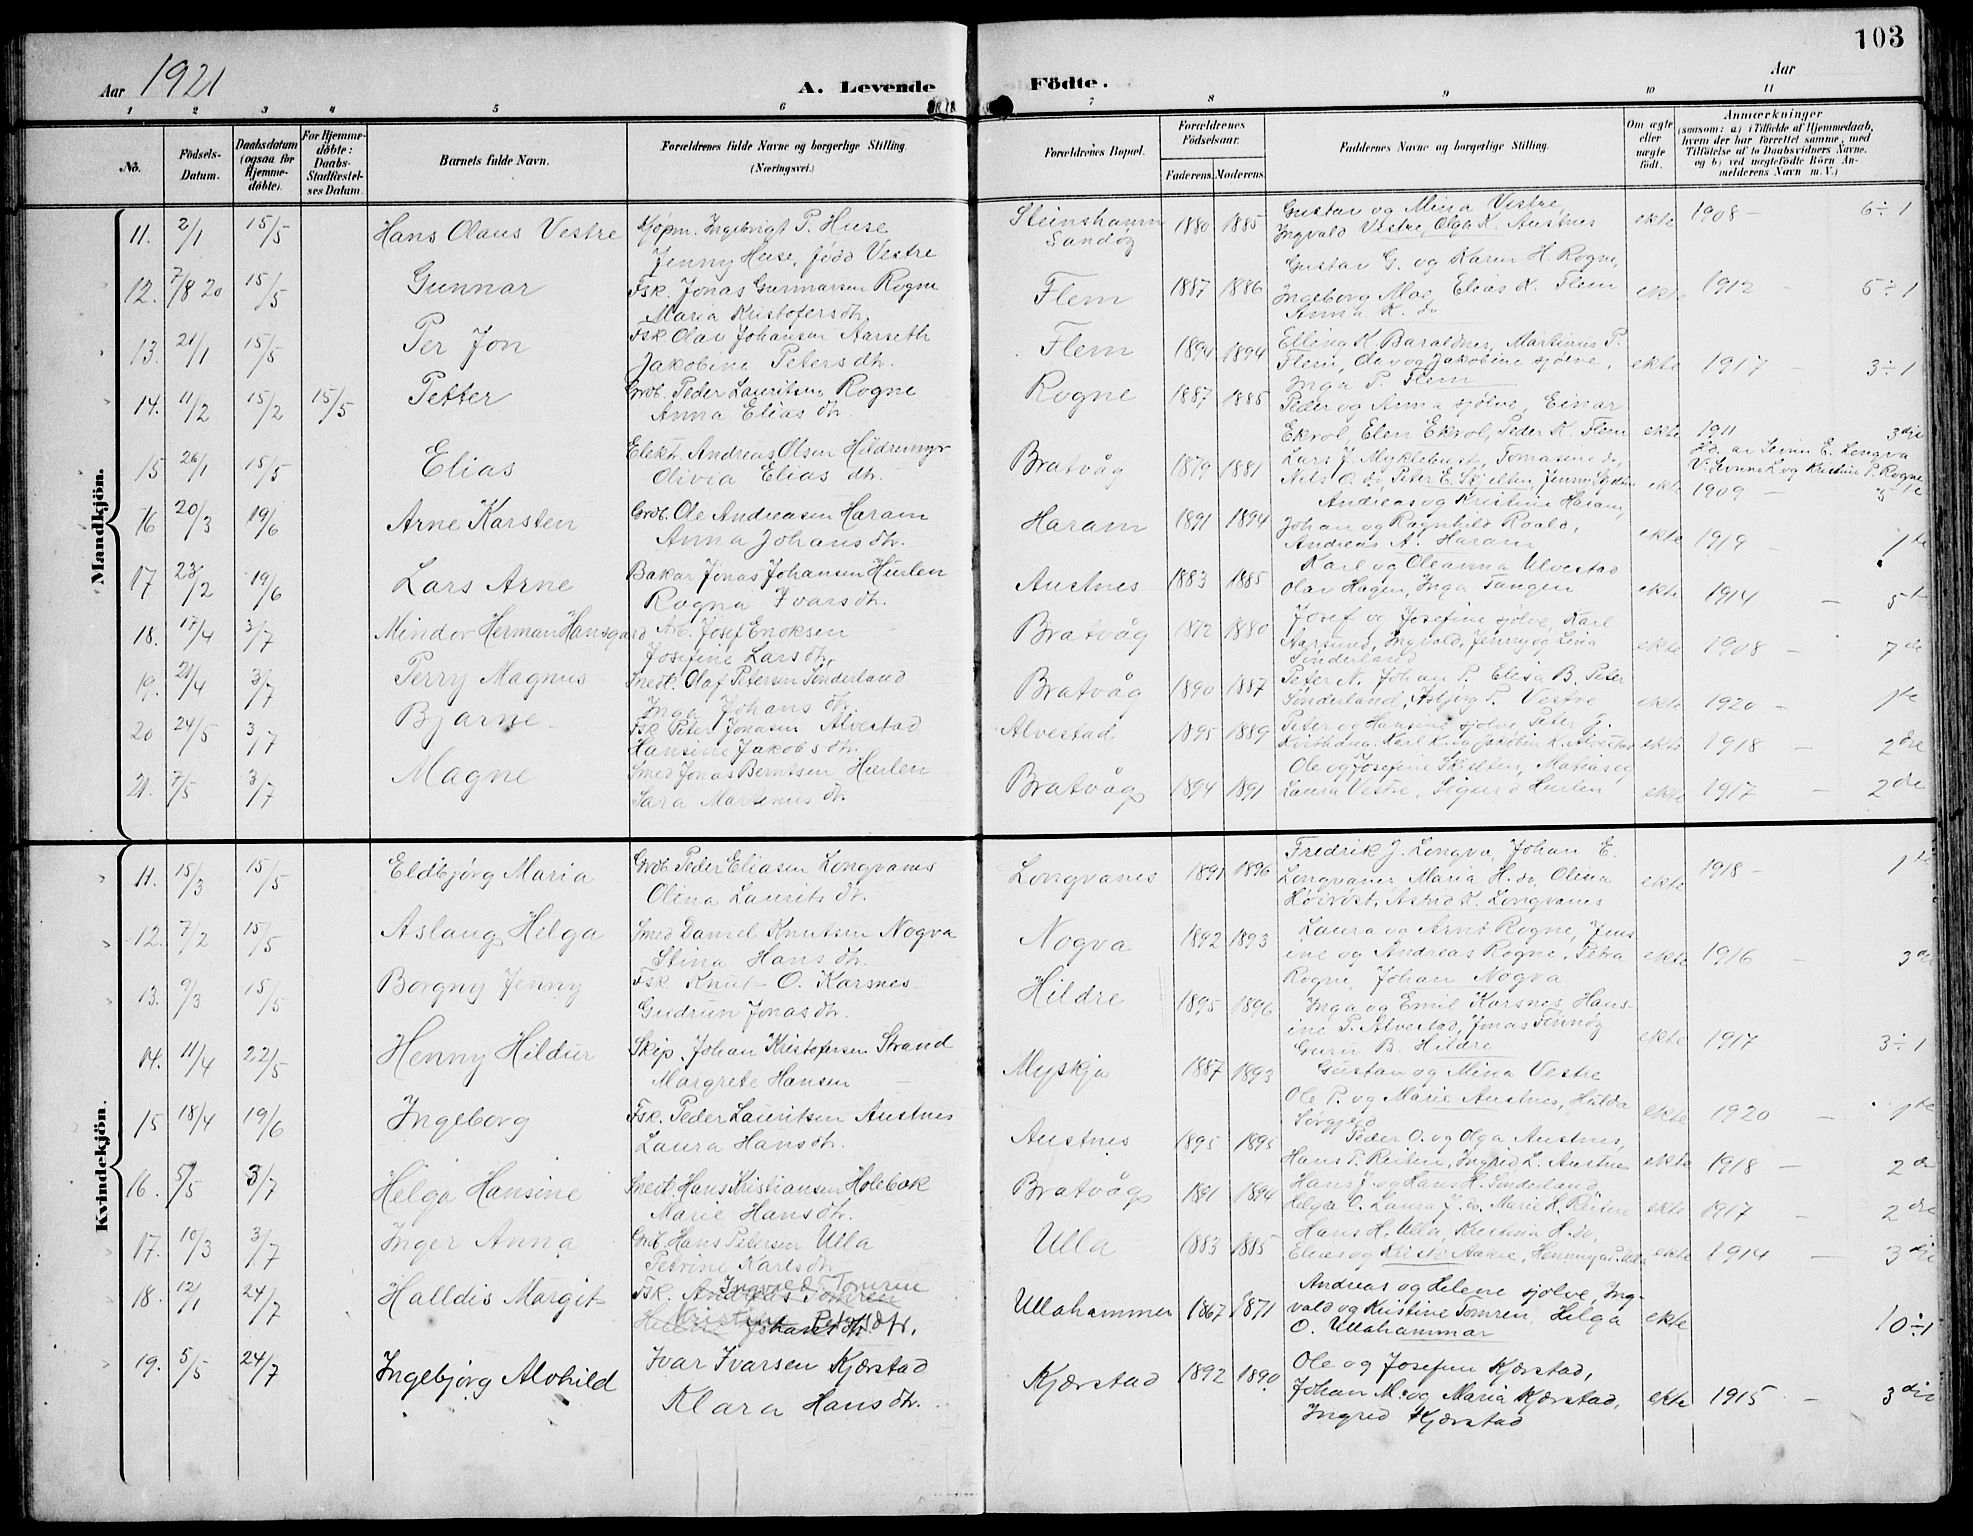 103
Aar 1921
A. Levende Födte.
Aar
1 2 3 4 5 6 7 8 9 10 11
No.
Födsels-Datum.
Daabsdatum (ogsaa for Hjemmedöbte).
For Hjemmedöbte: Daabs-Stadfæstelses Datum.
Barnets fulde Navn.
Forældrenes fulde Navne og borgerlige Stilling. (Næringsvei.)
Forældrenes Bopæl.
Forældrenes Födselsaar.
Faderens. Moderens.
Faddernes Navne og borgerlige Stilling.
Om ægte eller uægte födt.
Anmærkninger
(saasom: a) i Tilfælde af Hjemmedaab, hvem der har forrettet samme, med Tilföielse af to Daabsvidners Navne, og b) ved uegtefödte Börn Anmelderens Navn m. V.)
Mandkjön.
11. 2/1 15/5 Hans Olaus Vestre Kjøpm. Ingebrigt P. Huse Steinshamn 1880 1885 Gustav og Mina Vestre, ekte 1908 - 6÷1
Jenny Huse, född Vestre Sandøy Ingvald Vestre, Olga K. Austnes
12. 7/8 20 15/5 Gunnar Fsk. Jonas Gunnarsen Rogne Flem 1887 1886 Gustav G. og Karen H. Rogne, ekte 1912 - 5÷1
Maria Kristofersdtr. Ingeborg Moe, Elias K. Flem
Anna K. do
13. 21/1 15/5 Per Jon Fsk Olav Johansen Aarseth Flem 1894 1894 Elling K. Baraldnes, Martinus P. ekte 1917 - 3÷1
Jakobine Petersdtr. Flem, Olav og Jakobine sjølve,
Inga P. Flem
14. 11/2 15/2 15/5 Petter Grdb. Peder Lauritsen Rogne Rogne 1887 1885 Peder og Anna sjølve, Einar ekte 1911 3die
Anna Eliasdtr. Ekrol, Elen Ekrol, Peder K. Flem
Hd. av Sevrin E. Longva
15 26/1 15/5 Elias Elekt. Andreas Olsen Hildremyr Bratvåg 1879 1881 Lars J. Myklebust, Tomasine do, ekte 1909 - 5te
Olivia Eliasdtr. Nils O. do, Peter E. Skjelten,
16 20/3 19/6 Arne Karsten Grdb. Ole Andreasen Haram Haram 1891 1894 Andreas og Kristine Haram, ekte 1919 - 1te
Anna Johansdtr. Johan og Ragnhild Roald,
Andreas A. Haram
17 23/2 19/6 Lars Arne Bakar Jonas Johansen Hurlen Austnes 1883 1885 Karl og Oleanna Ulvestad ekte 1914 - 5te
Ragna Ivarsdtr. Olav Hagen, Inga Tangen
18. 17/4 3/7 Mindor Herman Hansgard Arb. Josef Enoksen Bratvåg 1872 1880 Josef og Josefine sjølve, Karl ekte 1908 - 7de
Josefine Larsdtr. Aarsund, Ingvald, Jenny og Lina
Sønderland
19. 21/4 3/7 Perry Magnus Snedk. Olaf Petersen Sønderland Bratvåg 1890 1887 Peter N. Johan P. Elisa B. Peter ekte 1920 - 1te
Inga Johansdtr. Sønderland, Asbjørg P. Vestre
20 24/5 3/7 Bjarne Fsk Peter Jonasen Alvestad Alvestad 1895 1889 Peter og Hansine sjølve, Peter J. ekte 1918 - 2dre
Hansine Jakobsdtr. Karl K. og Jakobin K. Alvestad
21. 7/5 3/7 Magne Smed Jonas Berntsen Hurlen Bratvåg 1894 1891 Ole og Josefine Skjelten, Matias og ekte 1917 - 2dre
Sara Martinusdtr. Laura Vestre, Sigurd Hurlen
Kvindekjön.
11. 15/3 15/5 Eldbjørg Maria Grdb Peder Eliasen Longvanes Longvanes 1891 1896 Fredrik J. Longva, Johan E. ekte 1918 - 1te
Olina Lauritsdtr. Longvanes Maria H. do, Olina
Høirøst, Astrid K. Longvanes
12. 7/2 15/5 Aslaug Helga Smed Daniel Knutsen Nogva Nogva 1892 1893 Laura og Arnt Rogne, Jens- ekte 1916 - 3die
Stina Hansdtr. ine og Andreas Rogne, Petra
Rogne, Johan Nogva
13. 9/3 15/5 Borgny Jenny Fsk. Knut O. Karsnes Hildre 1895 1896 Inga og Emil Karsnes, Hans- ekte 1917 3÷1
Gudrun Jonasdtr. ine P. Alvestad, Jonas Fennøy
Guru B. Hildre
14. 11/4 22/5 Henny Hildur Skip. Johan Kristofersen Strand Myskja 1887 1893 Gustav og Mina Vestre ekte 1920 - 1te
Margrete Hansen Ole P. og Marie Austnes, Hilda
Sørgjerd
15 18/4 19/6 Ingeborg Fsk. Peder Lauritsen Austnes Austnes 1895 1895 Peder O. og Olga Austnes, ekte 1918 - 2dre
Laura Hansdtr. Hans P. Reiten, Ingrid L. Austnes
16. 5/5 3/7 Helga Hansine Snedk. Hans Kristiansen Holebak Bratvåg 1891 1894 Hans J. og Hans H. Sønderland ekte 1917 - 2dre
Marie Hansdtr. Helga O. Laura J. do, Marie K. Reiten
17. 10/3 3/7 Inger Anna Grdb. Hans Petersen Ulla Ulla 1883 1885 Hans H. Ulla, Kristina H. do, ekte 1914 - 3die
Petrine Karlsdtr. Elias og
18. 12/1 24/7 Halldis Margit Fsk. Andreas Tomren Ingvald Tomren Ullahammer 1867 1871 Andreas og Helene sjølve, Ing- ekte 10÷1
Helene Johansdtr. Kristine Petersdtr. vald og Kristine Tomren, Helga
O. Ullahammar
19. 5/5 24/7 Ingebjørg Alvhild Ivar Ivarsen Kjærstad Kjærstad 1892 1890 Ole og Josefine Kjærstad, ekte 1915 - 3die
Klara Hansdtr. Johan M. og Maria Kjærstad,
Ingred Kjærstad